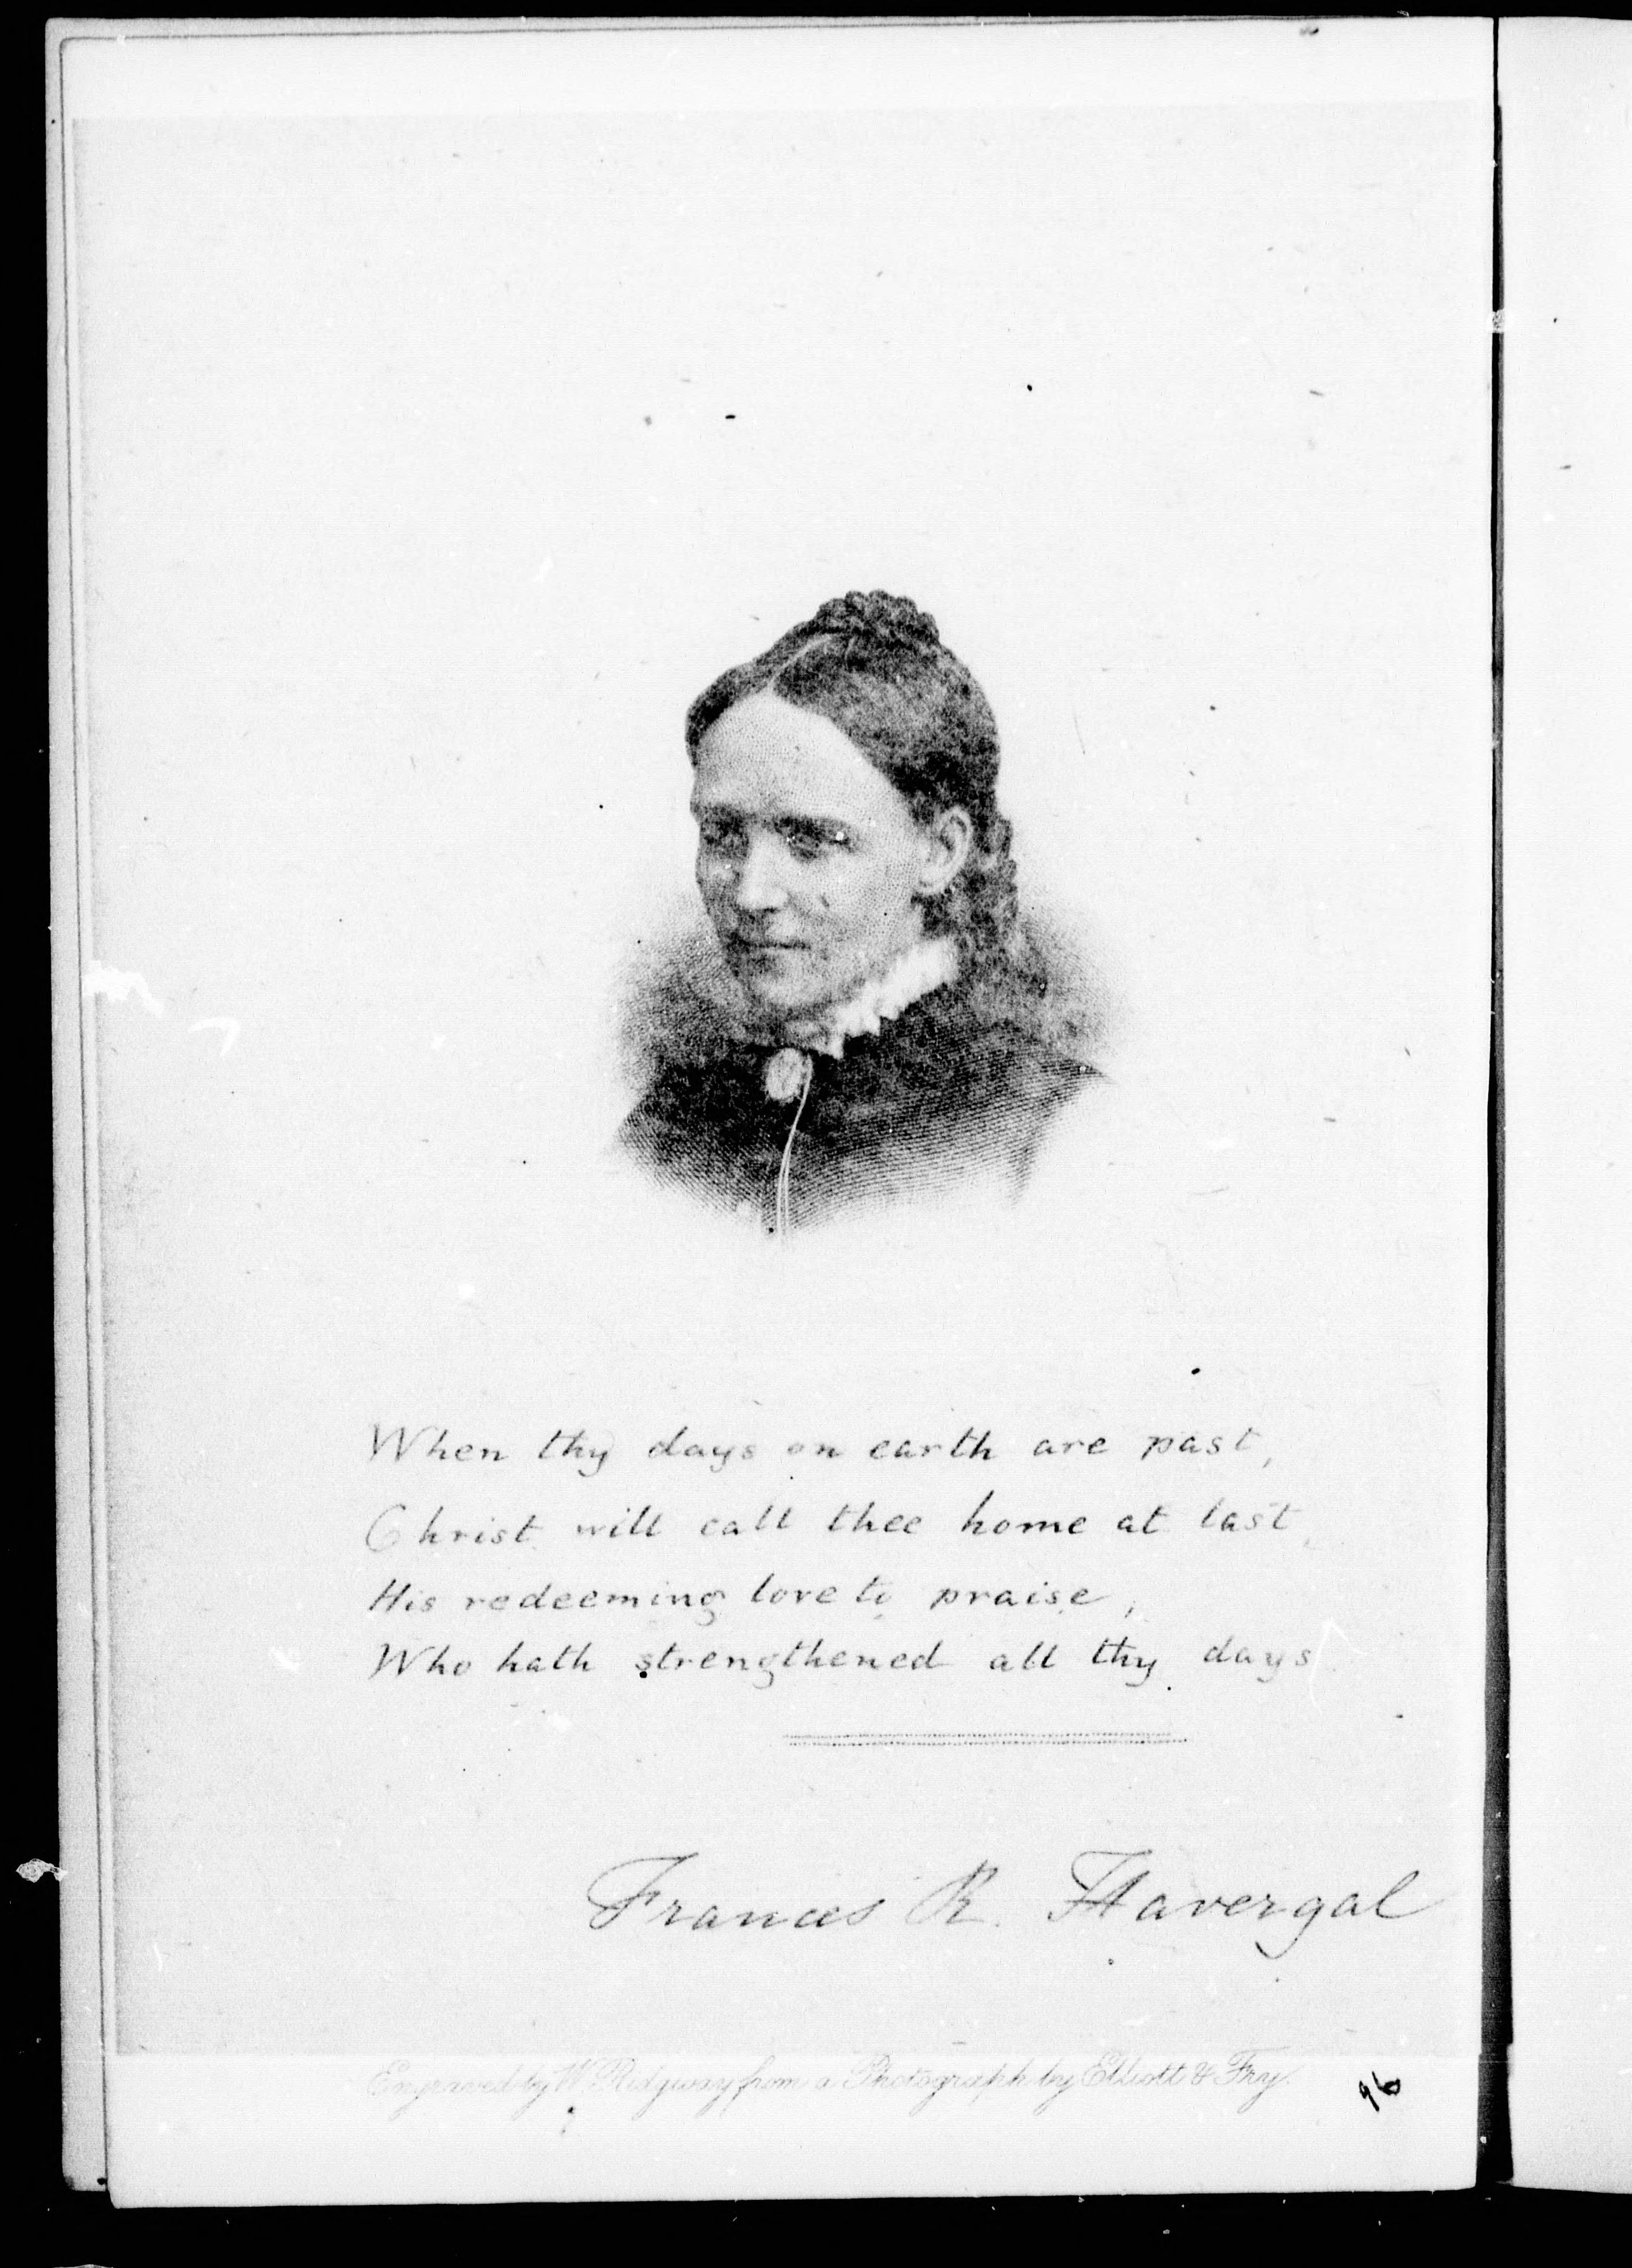 When thy days on earth are past,
Christ will call thee home at last,
His redeeming love to praise,
Who hath strengthened all thy days.
Frances R. Havergal
Engraved by W Ridgway from a Photograph by Elliott & Fry.
96